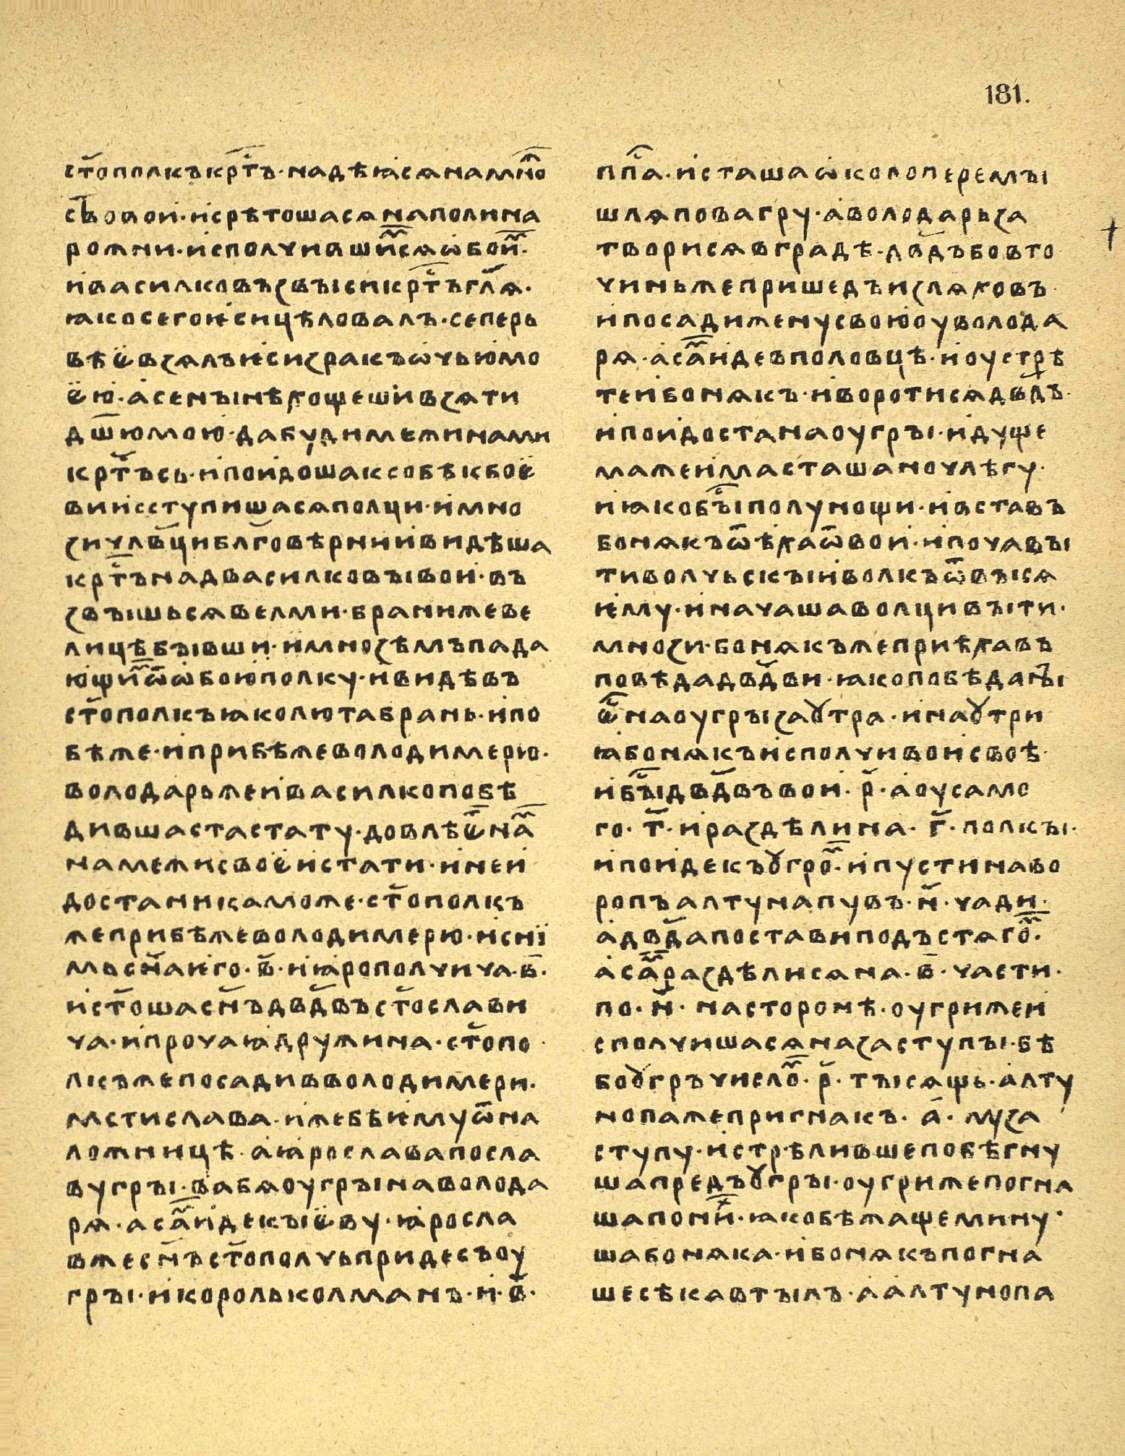 181.
ст҃ополкъкрⷭ҇тъ·надѣꙗсѧнамно
своⷯвои·исрѣтошасѧнаполина
рожни·исполчившиⷨсѧѡбоиⷨ·
ивасилковъꙁвъісикрⷭ҇тъгл҃ѧ·
ꙗкосегоѥсицѣловалъ·сеперь
вѣєвꙁѧлъѥсиꙁракъѡчьюмо
єю·асенъінѣхощешивꙁѧти
дш҃юмою·дабудимежинами
крⷭ҇тъсь·ипоидошаксобѣкбоє
виисступишасѧполци·имно
ꙁичл҃вцибл҃говѣрниивидѣша
крⷭ҇тънадвасилковъівои·въ
ꙁвъішьсѧвелми·бранижеве
лицѣбъівши·имноꙁѣмъпада
ющиⷨѿѡбоюполку·ивидѣвъ
ст҃ополкъꙗколютабрань·ипо
бѣже·иприбѣжеволодимерю·
володарьжеивасилкопобѣ
дившастастату·довлѣєⷮнаⷨ
намежисвоєистати·инеи
достаникаможе·ст҃ополкъ
жеприбѣжеволодимерю·иснї
мьсн҃аиѥго·в҃·иꙗрополчича·в҃·
ист҃ошасн҃ъдв҃двъст҃ослави
ча·ипрочаꙗдружина·ст҃опо
лкъжепосадивволодимери·
мстислава·ижебѣѥмуѿна
ложницѣ·аꙗрославапосла
вугръі·вабѧоугръінаволода
рѧ·асаⷨидекъієву·ꙗросла
вжесн҃ъст҃ополчьпридесъоу
гръі·икорольколманъ·и·в҃·
ппⷭ҇а·исташаѡколоперемъі
шлѧповагру·аволодарьꙁа
творисѧвградѣ·дв҃дъбовто
чиньжепришедъиꙁлѧховъ
ипосадиженусвоюоуволода
рѧ·асаⷨидевполовцѣ·иоустрѣ
теибонѧкъ·иворотисѧдв҃дъ·
ипоидостанаоугръі·идуще
мажеимасташаночлѣгу·
иꙗкобъⷭ҇іполунощи·ивставъ
бонѧкъѿѣхаѿвои·ипочавъі
тиволчьскъіиволкъѿвъісѧ
ѥму·иначашаволцивъіти·
мноꙁи·бонѧкъжеприѣхавъ
повѣдадв҃дви·ꙗкопобѣданъⷨі
єⷭ҇наоугръіꙁаꙋтра·инаꙋтри
ꙗбонѧкъисполчивоисвоѣ·
ибъⷭ҇ідв҃двъвои·р҃·аоусамо
го·т҃·ираꙁдѣлина·г҃·полкъі·
ипоидекъꙋгроⷨ·ипустинаво
ропъалтунапувъ·н҃·чади·
адв҃дапоставиподъстѧгоⷨ·
асаⷨраꙁдѣлисѧна·в҃·части·
по·н҃·насторонѣ·оугрижеи
сполчишасѧнаꙁаступъі·бѣ
боꙋгръчислоⷨ·р҃·тъісѧщь·алту
нопажепригнакъ·а҃·муꙁа
ступу·истрѣлившепобѣгну
шапредъꙋгръі·оугрижепогна
шапониⷯ·ꙗкобѣжащемину
шабонѧка·ибонѧкъпогна
шесѣкавтъілъ·аалтунопа